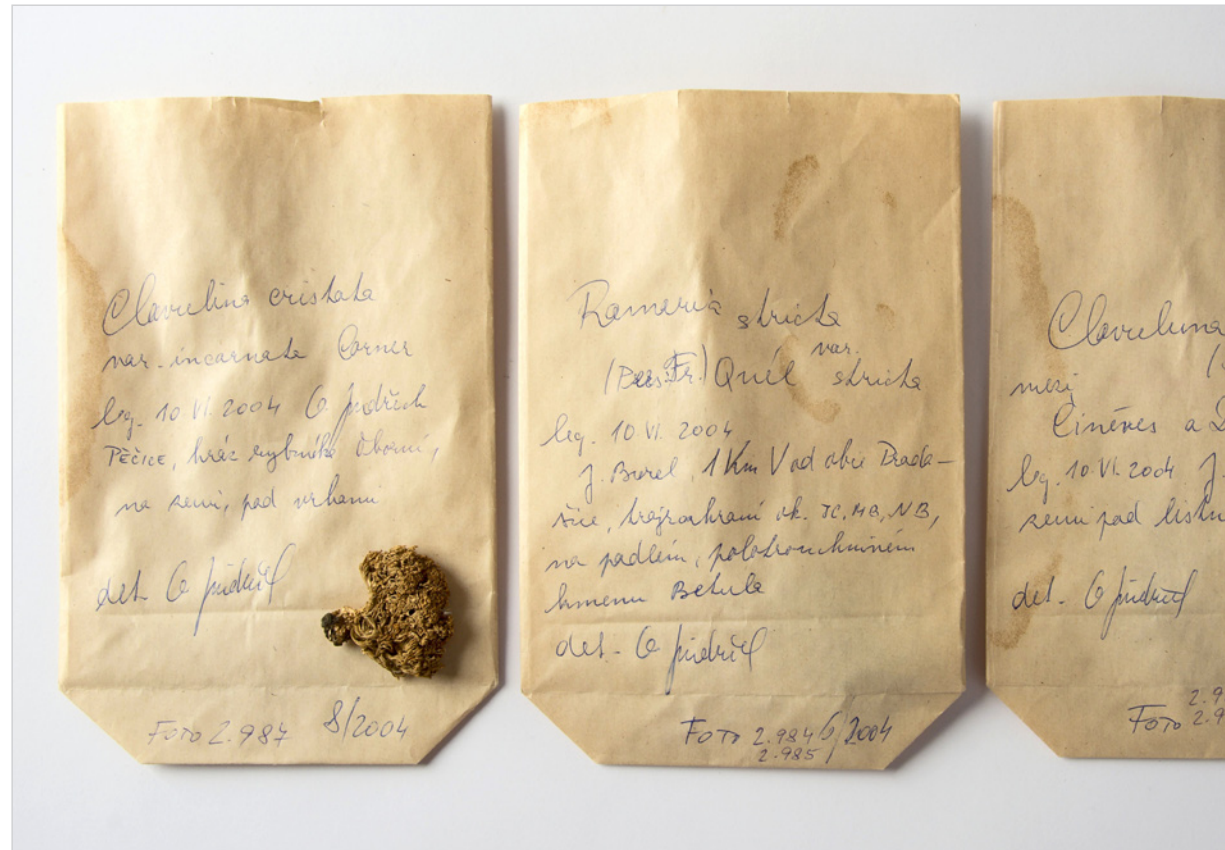 Clavulina cristata
var. incarnata Corner
leg. 10 VI. 2004 O Jindřich
PĚČICE, hráz rybníka Oborní,
na zemi, pod vrbami
det. O Jindřich
FOTO 2.987 8/2004
Ramaria stricta
(Pers. Fr.) Quél var. stricta
leg. 10. VI. 2004
J. Burel, 1 Km V od obce
ok. JC, MB, NB,
na padlém,
kmenu Betula
det. O Jindřich
FOTO 2.984 6/2004
2.985
Clavulina
(
mezi
Cinéres a
leg. 10. VI. 2004 J
zemi pod listn
det. O Jindřich
2.9
FOTO 2.9